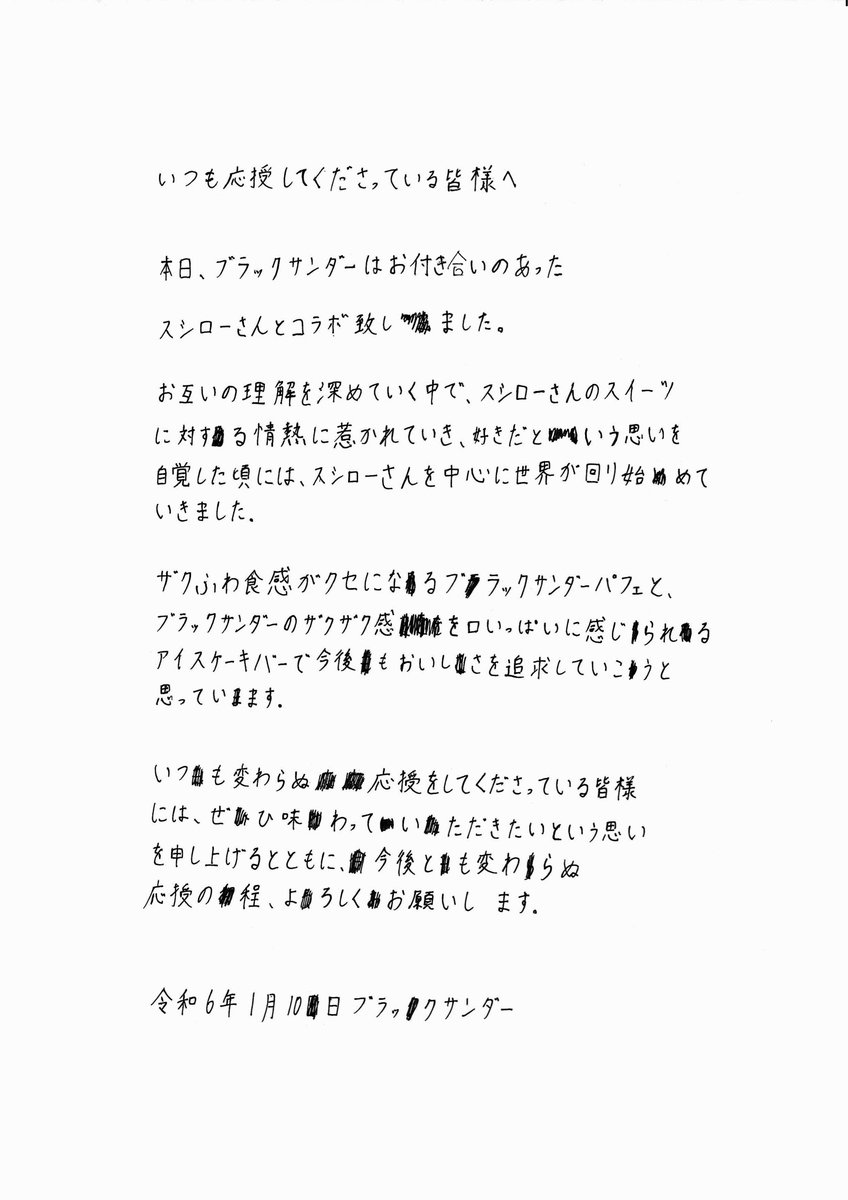 いつも応授してくださっている皆様へ
本日、ブラックサンダーはお付き合いのあった
スシローさんとコラボ致しました。
お互いの理解を深めていく中で、スシローさんのスイーツ
に対する情熱に惹かれていき、好きだという思いを
自覚した頃には、スシローさんを中心に世界が回り始めて
いきました.
ザクふわ食感がクセになるブラックサンダーパフェと、
ブラックサンダーのザクザク感を口いっぱいに感じられる
アイスケーキバーで今後もおいしさを追求していこうと
思っています.
いつも変わらぬ応授をしてくださっている皆様
には、ぜひ味わっていただきたいという思い
を申し上げるとともに、今後とも変わらぬ
応授の程、よろしくお願いします.
令和6年1月10日ブラックサンダー